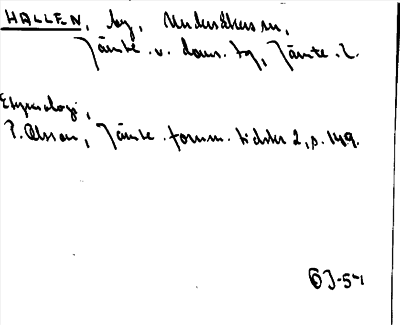 HALLEN, by, Undersåkers sn,
Jämtl. v. doms. tg, Jämtl. l.
Etymologi,
P. Olsson, Jämtl. fornm. tidskr 2, s. 149.
J-51